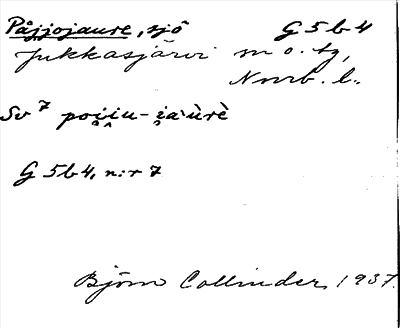 Påjjojaure, sjö G 5 b 4
Jukkasjärvi s:n o. tg,
Nrrb. l.
Sv 7 poi̯i̯u-i̯a'ùrè
G 5b4, n:r 7
Björn Collinder 1937.